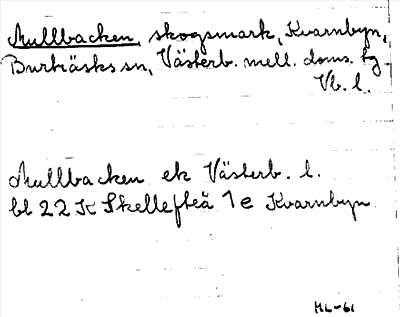 Mullbacken, skogsmark, Kvarnbyn,
Burträsks sn, Västerb. mell. doms. tg.
Vb. l.
Mullbacken ek Västerb. l.
bl 22 K Skellefteå 1e Kvarnbyn
ML-61